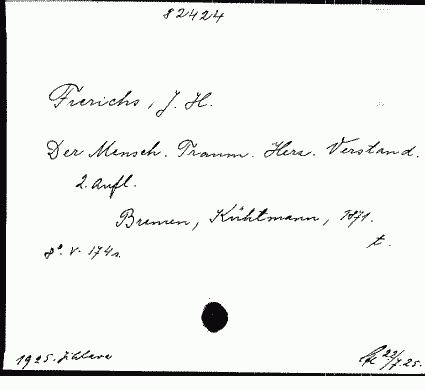 82424
Frerichs, J. H.
Der Mensch. Traum. Herz. Verstand.
2. Aufl.
Bremen, Kühtmann, 1871.
t.
8°. V. 174 s.
1925. Jihlava 22/7.25.